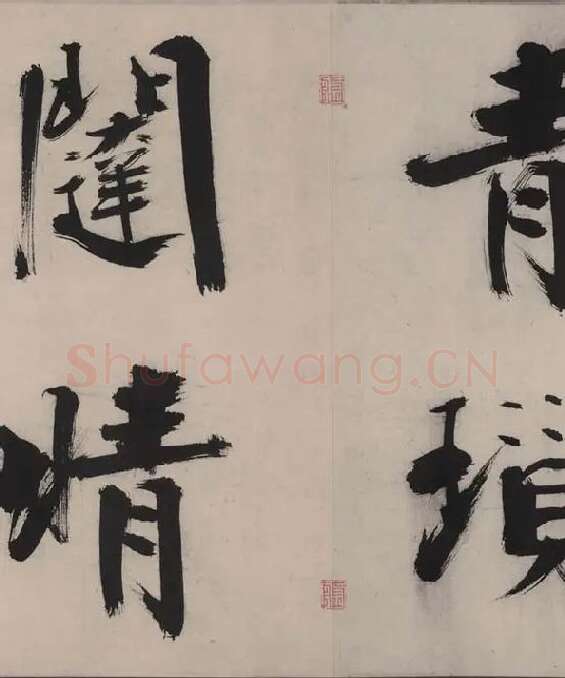 青瑣
闥情
Shufawang.CN